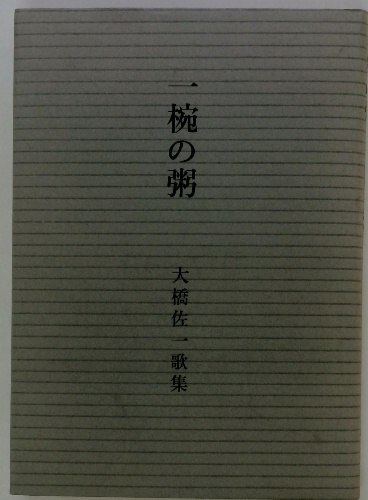 一椀の粥
大橋佐一歌集